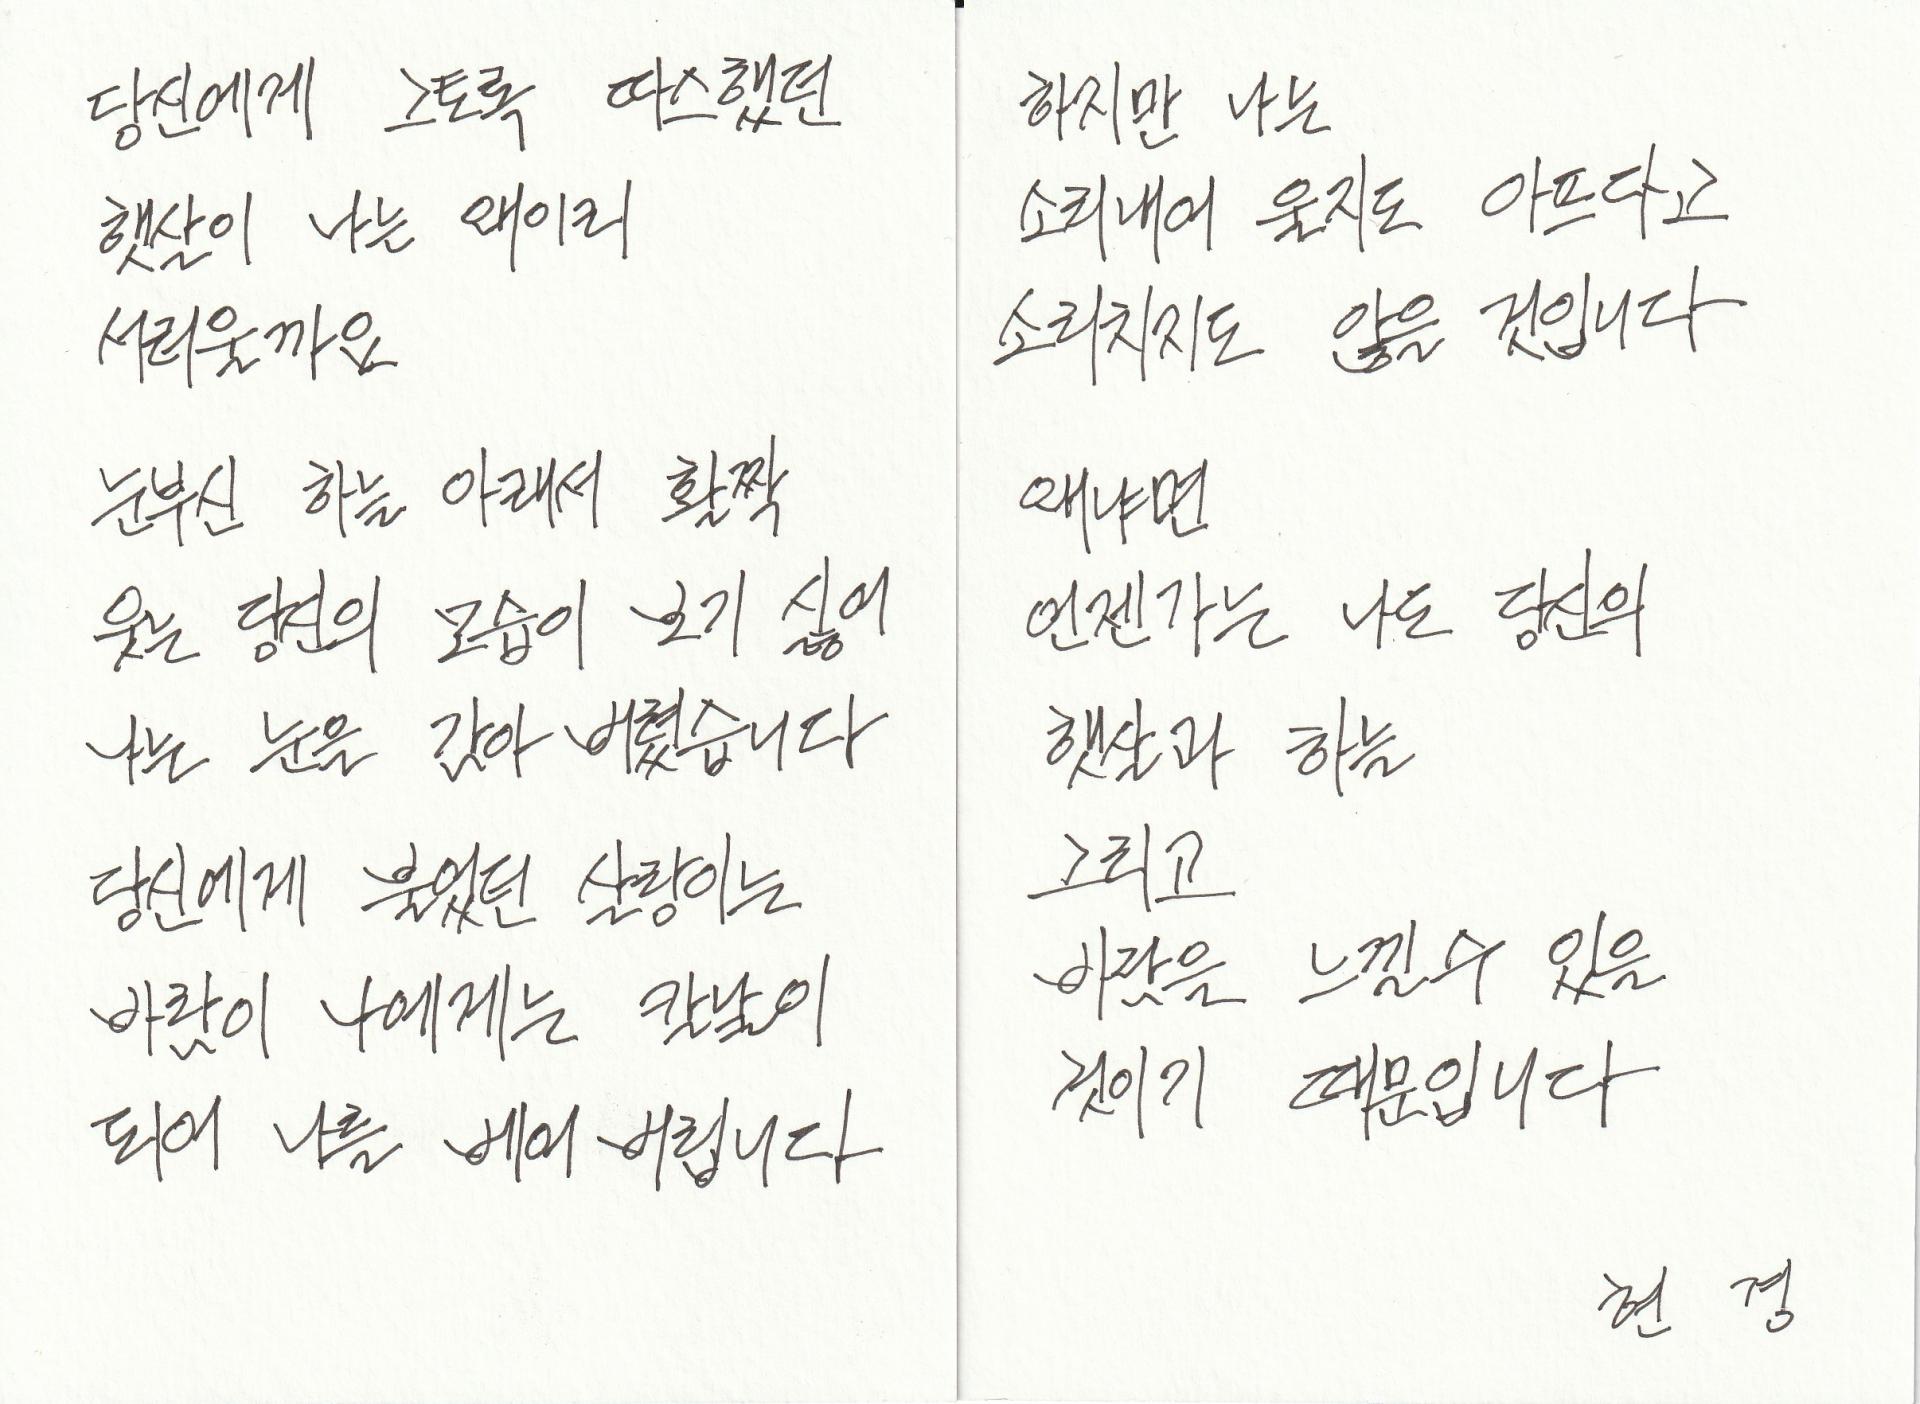 당신에게 그토록 따스했던
햇살이 나는 왜이리
서러울까요
눈부신 하늘 아래서 활짝
웃는 당신의 모습이 보기 싫어
나는 눈을 감아 버렸습니다
당신에게 불었던 살랑이는
바람이 나에게는 칼날이
되어 나를 베어 버립니다
하지만 나는
소리내어 울지도 아프다고
소리치지도 않을 것입니다
왜냐면
언젠가는 나도 당신의
햇살과 하늘
그리고
바람을 느낄 수 있을
것이기 때문입니다
현 경